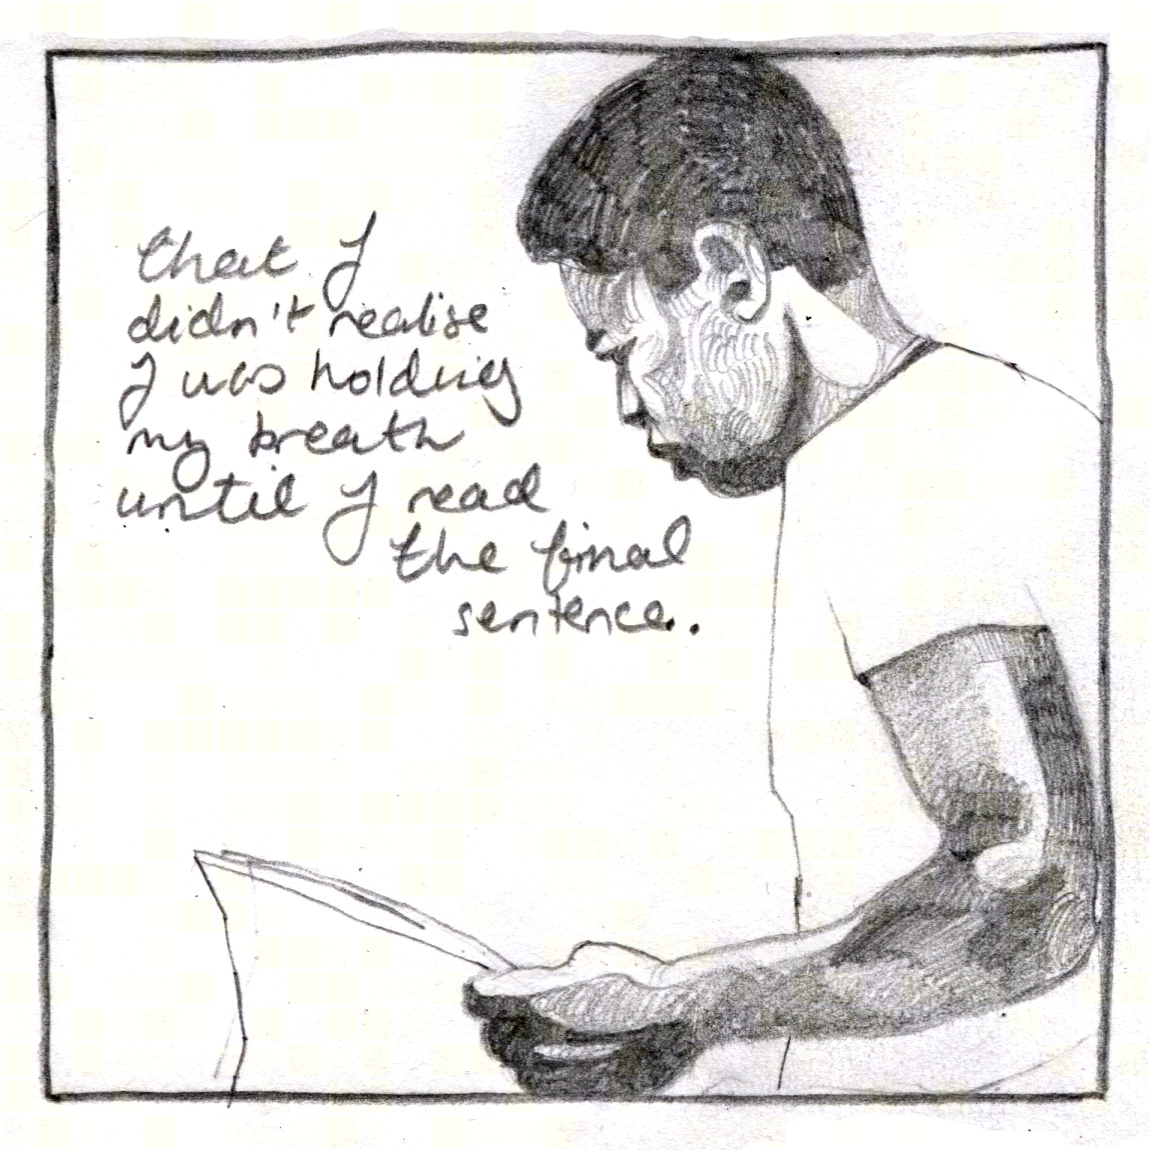 that I
didn't realise
I was holding
my breath
until I read
the final
sentence.